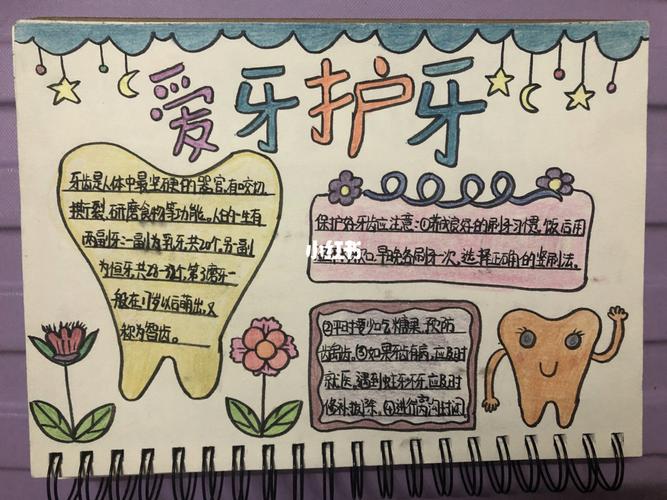 爱牙护牙
牙齿是人体中最坚硬的器官,有咬切、
撕裂、研磨食物等功能。人的一生有
两副牙:一副为乳牙共20个,另一副
为恒牙共28-32个,第3磨牙一
般在17岁以后萌出,又
称为智齿。
保护好牙齿应注意:①养成良好的刷牙习惯,饭后用
口,早晚各刷牙一次,选择正确的竖刷法。
小红书
②平时要少吃糖果,预防
龋齿。③如果牙齿有病,应及时
就医。遇到蛀牙坏牙,应及时
修补拔除。④进行窝沟封闭。